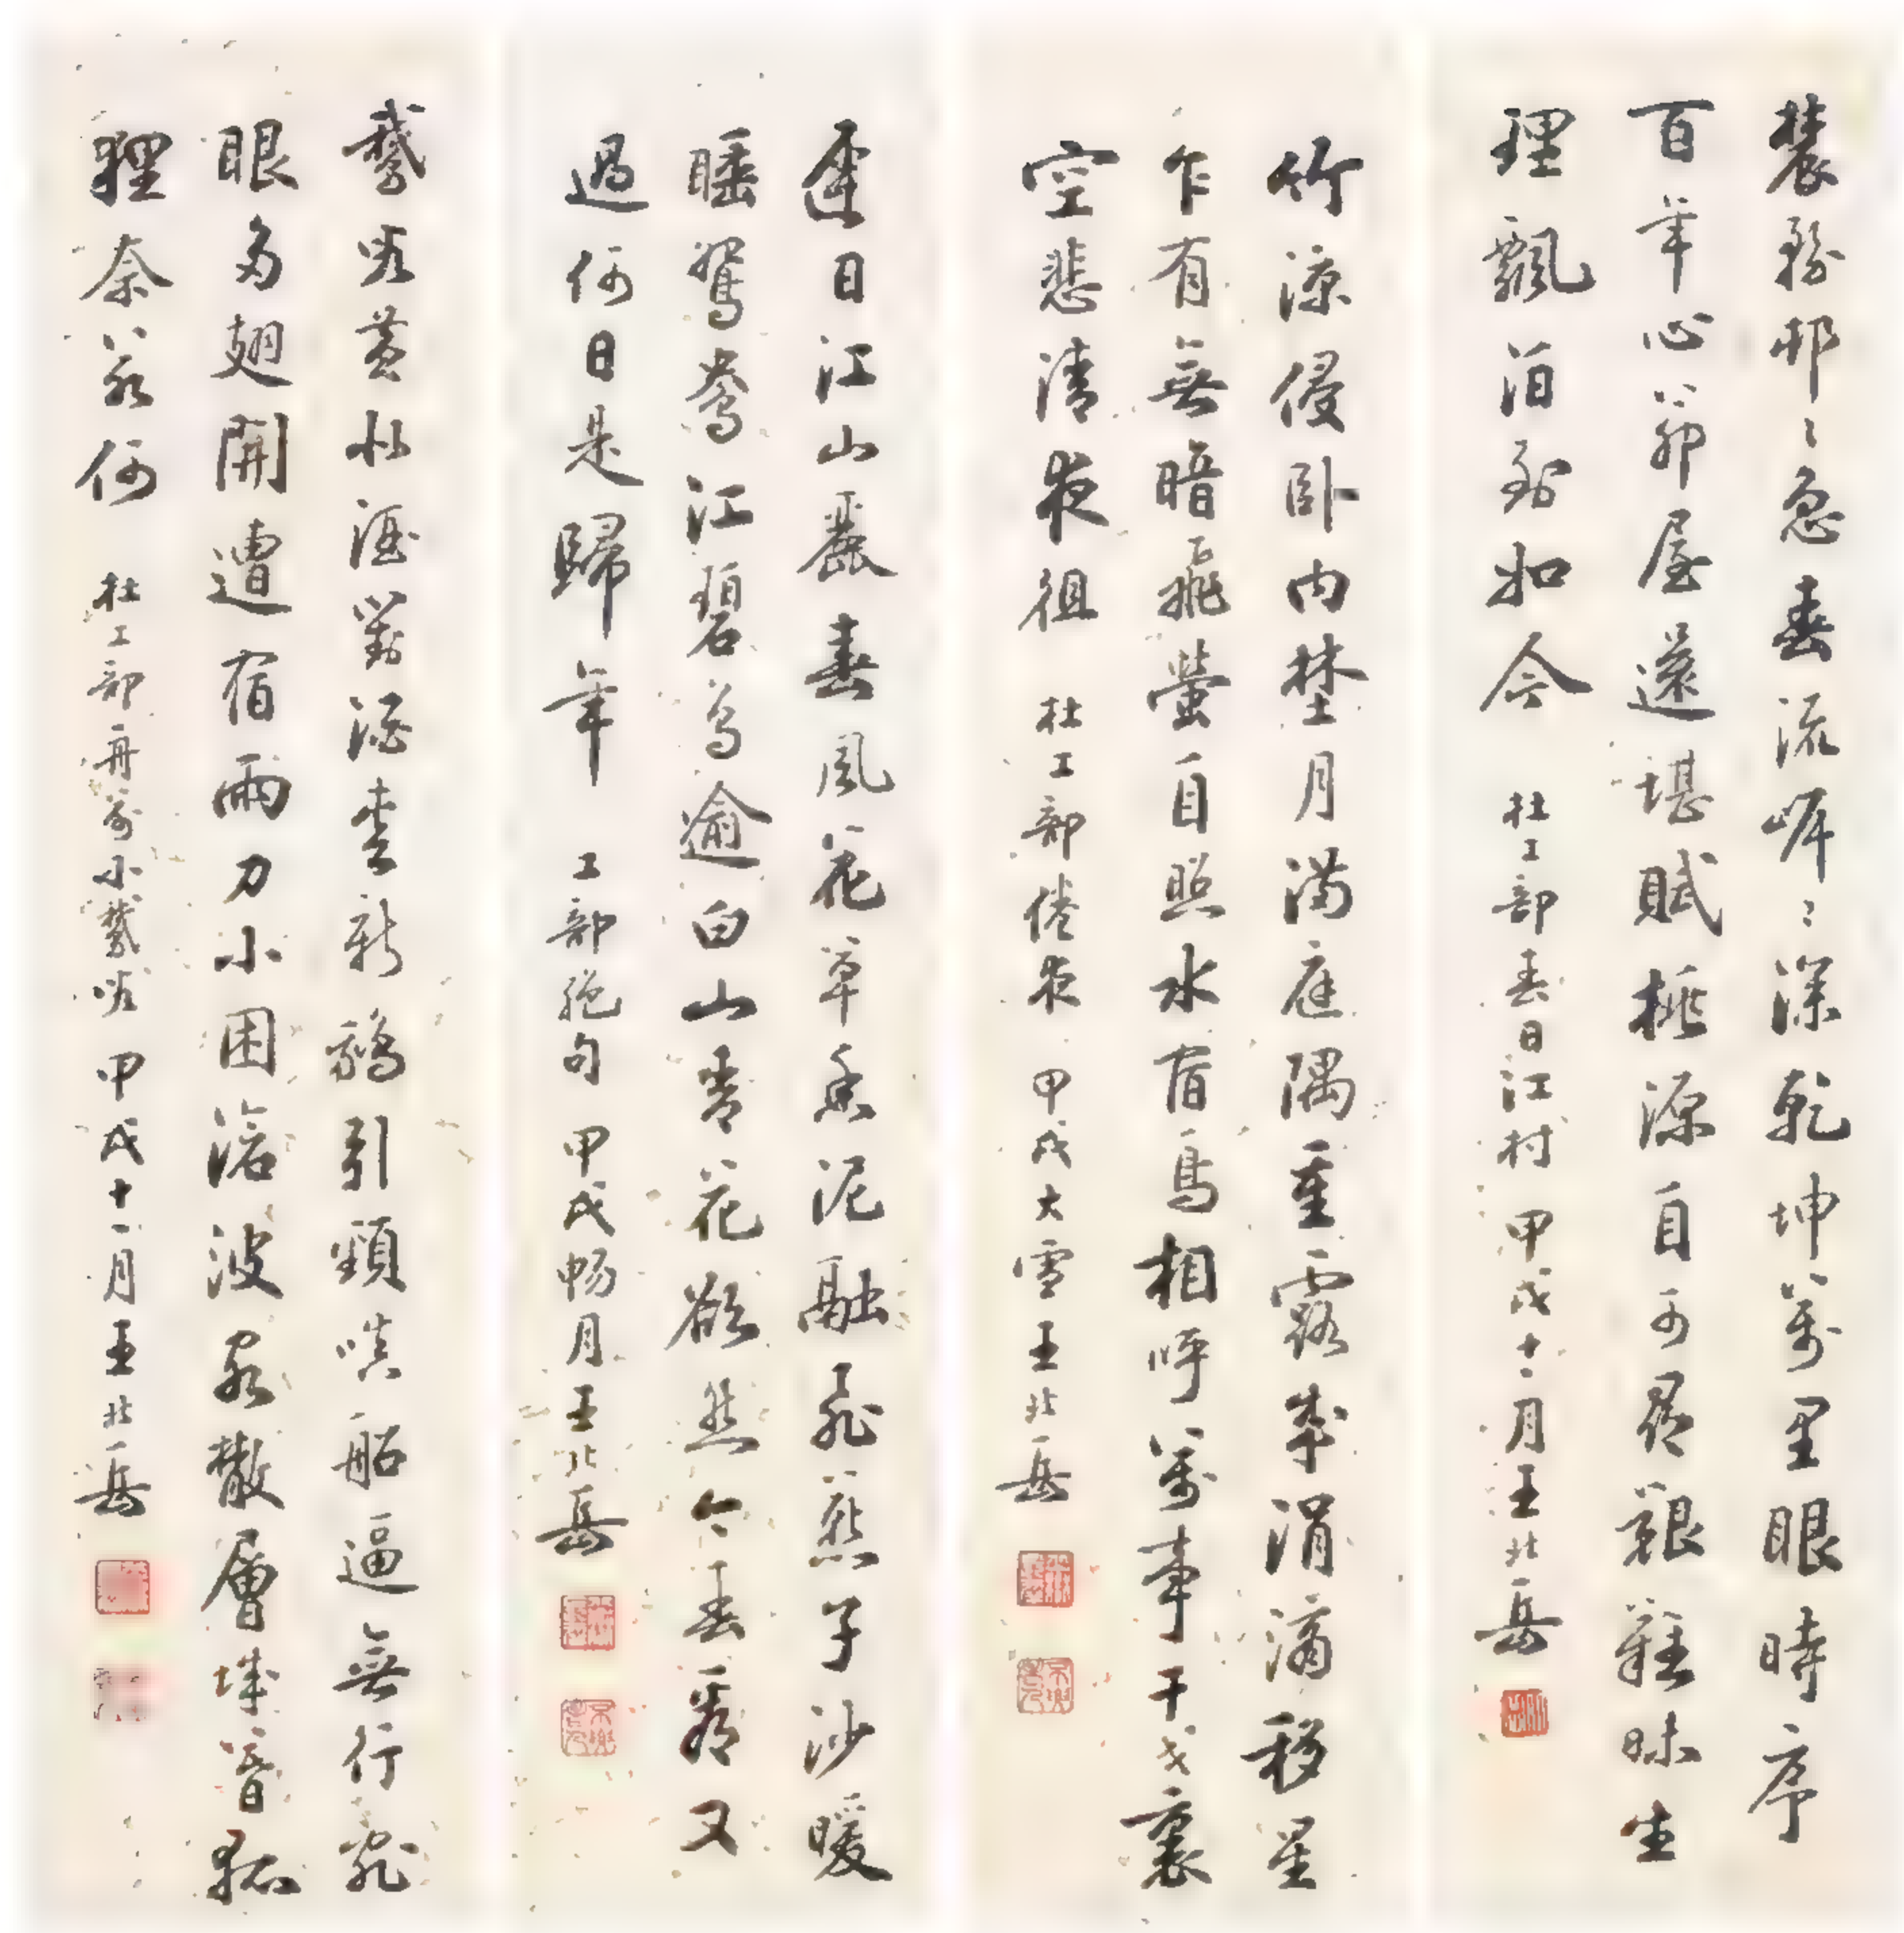 農務村〻急春流岸〻深乾坤萬里眼時序
百年心茅屋還堪賦桃源自可尋艱難昧生
理飄泊到如今 杜工部春日江村 甲戌十一月王北岳
竹涼侵臥內埜月滿庭隅重露成涓滴稀星
乍有無暗飛螢自照水宿鳥相呼萬事干戈裏
空悲清夜徂 杜工部倦夜 甲戌大雪王北岳
遲日江山麗春風花草香泥融飛燕子沙暖
睡鴛鴦江碧鳥逾白山青花欲然今春看又
過何日是歸年 工部絕句 甲戌暢月王北岳
鵝兒黃似酒對酒愛新鵝引頸嗔船逼無行亂
眼多翅開遭宿雨力小困滄波客散層城暮狐
狸奈若何 杜工部舟前小鵝兒 甲戌十一月王北岳